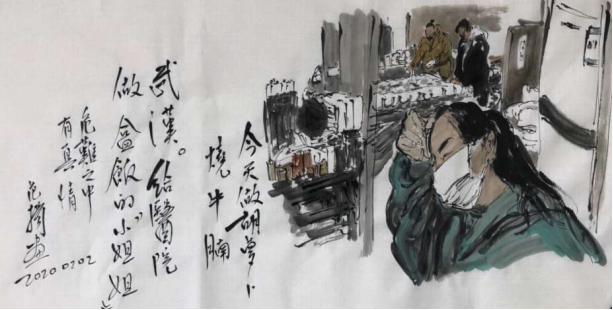 今天做胡萝卜
燒牛腩
武漢。給醫院
做盒飯的小姐姐
危難之中
有真情
范揚画
20200202